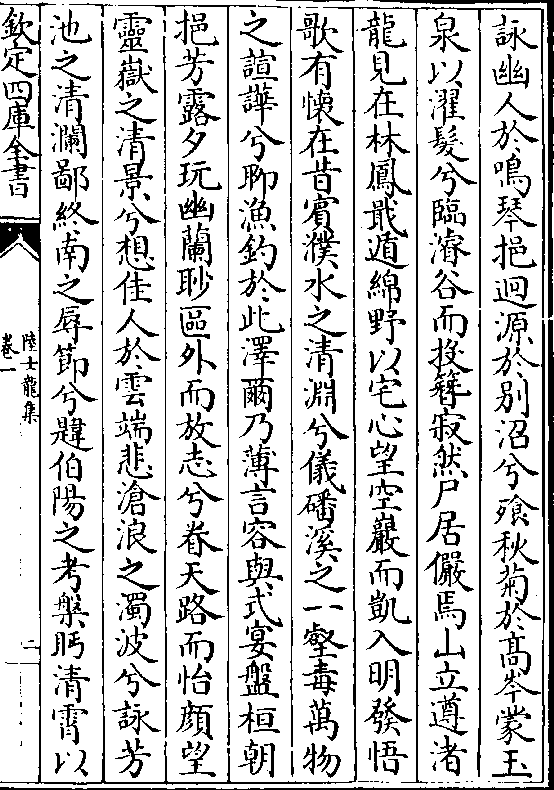 詠幽人於鳴琴挹迴源於别沼兮飱秋菊於髙岑蒙玉
泉以濯髮兮臨濬谷而投簪寂然尸居儼焉山立遵渚
龍見在林鳳戢遁綿野以宅心望空巖而凱入明發悟
歌有懐在昔賓濮水之清淵兮儀磻溪之一壑毒萬物
之諠譁兮聊漁釣於此澤爾乃薄言容與式宴盤桓朝
挹芳露夕玩幽蘭眇區外而放志兮眷天路而怡顔望
靈嶽之清景兮想佳人於雲端悲滄浪之濁波兮詠芳
池之清瀾鄙終南之辱節兮韙伯陽之考槃眄清霄以
欽定四庫全書
陸士龍集
卷一
二